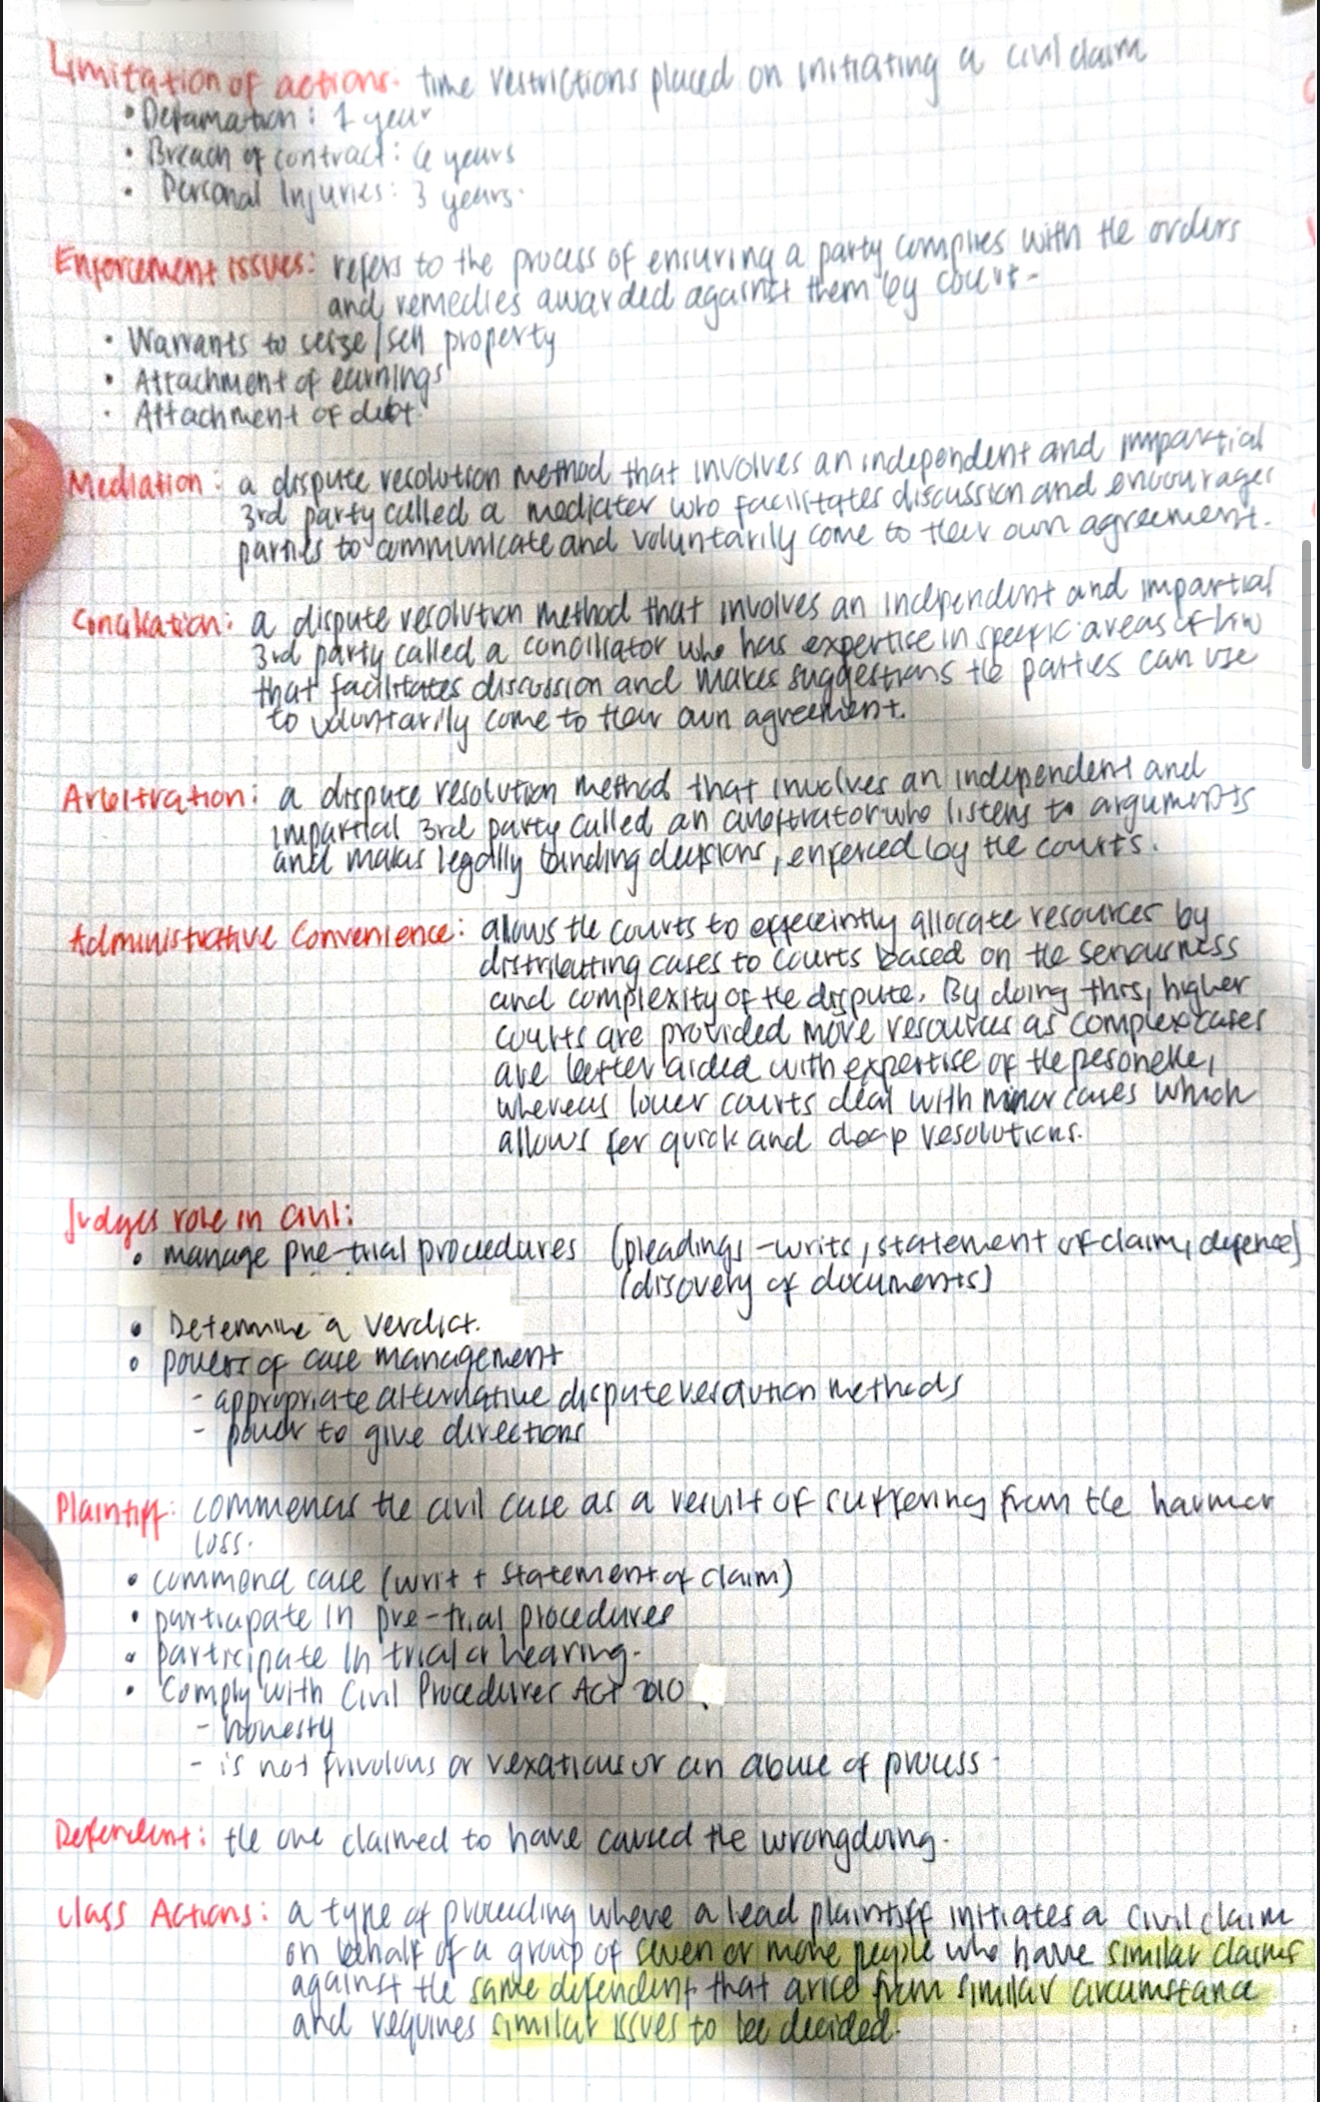 Limitation of actions: time restrictions placed on initiating a civil claim
• Defamation: 1 year
• Breach of contract: 6 years
• Personal Injuries: 3 years.
Enforcement issues: refers to the process of ensuring a party complies with the orders
and remedies awarded against them by court -
• Warrants to seize/sell property
• Attachment of earnings
• Attachment of debt.
Mediation: a dispute resolution method that involves an independent and impartial
3rd party called a mediater who facilitates discussion and encourages
parties to communicate and voluntarily come to their own agreement.
Conciliation: a dispute resolution method that involves an independent and impartial
3rd party called a conciliator who has expertise in specific areas of law
that facilitates discussion and makes suggestions the parties can use
to voluntarily come to their own agreement.
Arbitration: a dispute resolution method that involves an independent and
impartial 3rd party called an arbitrator who listens to arguments
and makes legally binding decisions, enforced by the courts.
Administrative Convenience: allows the courts to effeciently allocate resources by
distributing cases to courts based on the seriousness
and complexity of the dispute. By doing this, higher
courts are provided more resources as complex cases
are better aided with expertise of the personelle,
whereas lower courts deal with minor cases which
allows for quick and cheap resolutions.
Judges role in civil:
• manage pre-trial procedures (pleadings - writs, statement of claim, defence)
(discovery of documents)
• Determine a verdict.
• powers of case management
- appropriate alternative dispute resolution methods
- power to give directions
Plaintiff: commences the civil case as a result of suffering from the harm or
loss.
• commence case (writ + statement of claim)
• participate in pre-trial procedures
• participate in trial or hearing.
• Comply with Civil Procedures Act 2010.
- honesty
- is not frivolous or vexatious or an abuse of process
Defendent: the one claimed to have caused the wrongdoing.
Class Actions: a type of proceeding where a lead plaintiff initiates a civil claim
on behalf of a group of seven or more people who have similar claims
against the same defendent that arise from similar circumstance
and requires similar issues to be decided.